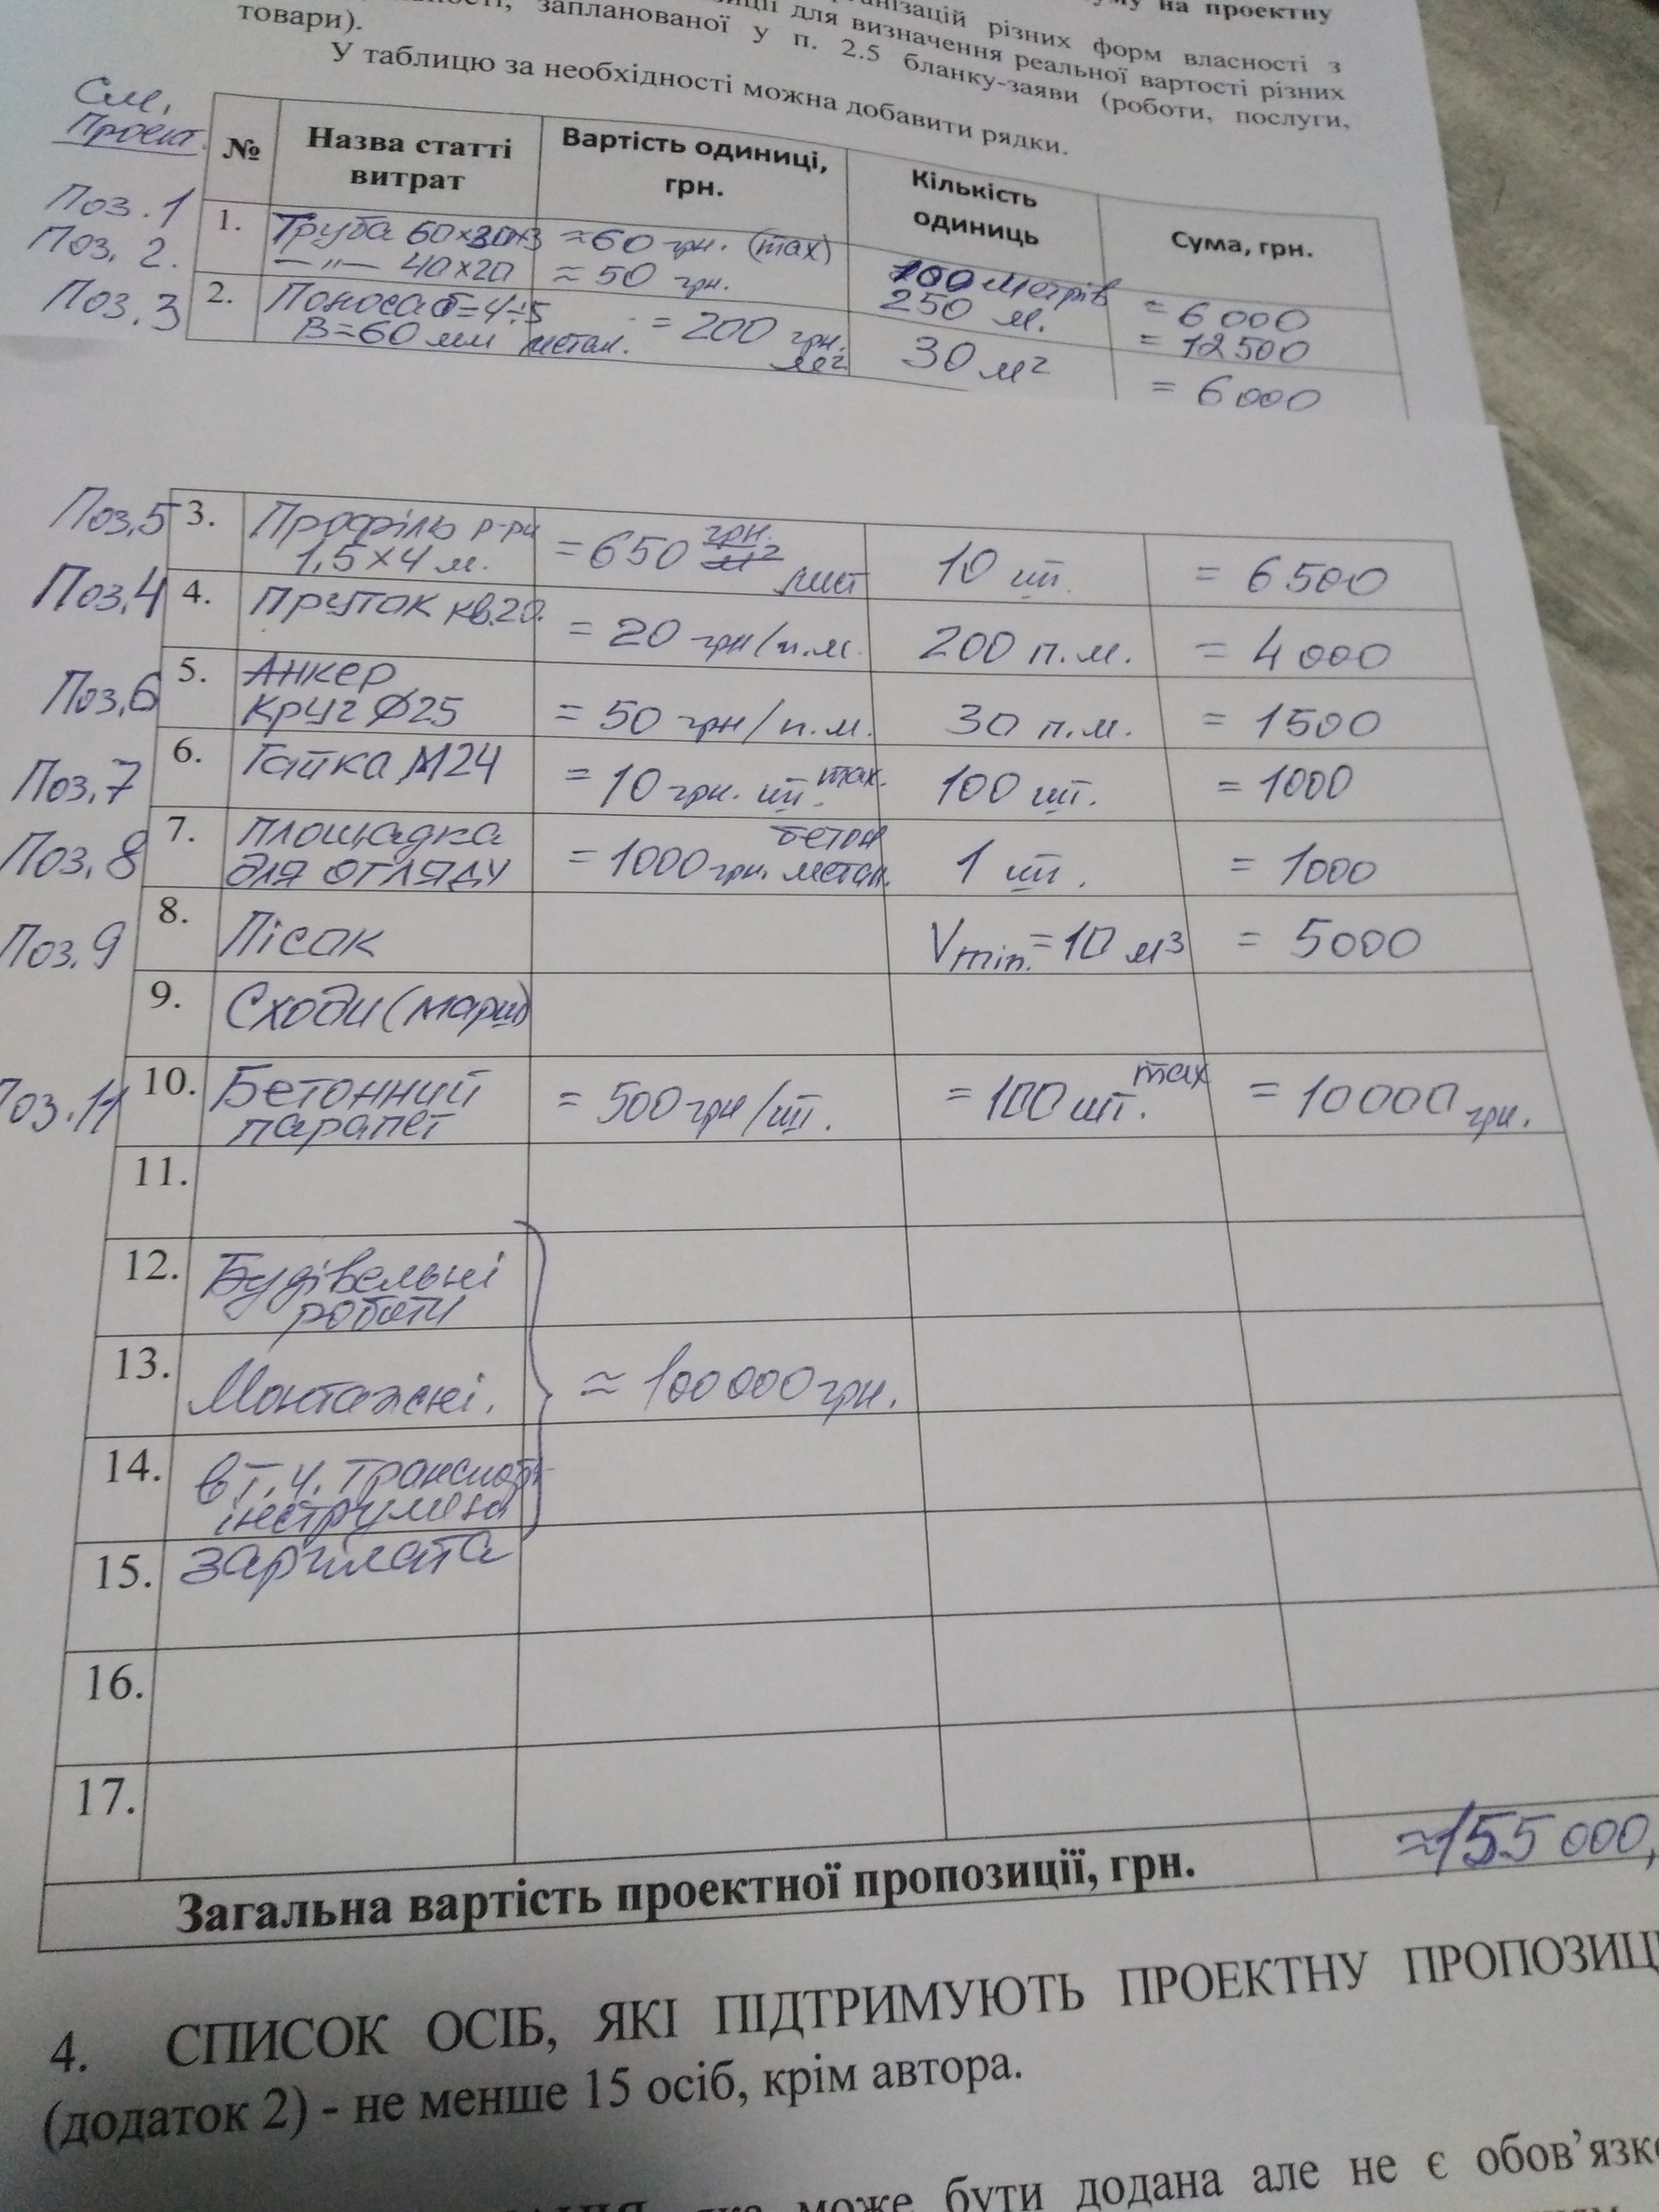 уму на проектну
організацій різних форм власності з
для визначення реальної вартості різних
запланованої у п. 2.5 бланку-заяви (роботи, послуги,
товари).
У таблицю за необхідності можна добавити рядки.
См.
Проект.
№ Назва статті витрат Вартість одиниці, грн. Кількість одиниць Сума, грн.
Поз. 1 1. Труба 60×30×3 ≈60 грн. (max) 100 метрів = 6 000
Поз. 2. —〃— 40×20 ≈ 50 грн. 250 м. = 12 500
Поз. 3 2. Полоса δ=4÷5 = 200 грн. м² 30 м² = 6 000
В=60 мм метал.
Поз.5 3. Профіль р-ри = 650 грн. лист 10 шт. = 6 500
1,5×4 м.
Поз.4 4. Пруток кв.20. = 20 грн/п.м. 200 п.м. = 4 000
Поз.6 5. Анкер
круг Ø25 = 50 грн/п.м. 30 п.м. = 1500
Поз.7 6. Гайка М24 = 10 грн. шт. max. 100 шт. = 1000
Поз.8 7. площадка бетон
для огляду = 1000 грн. метал. 1 шт. = 1000
Поз.9 8. Пісок Vmin. = 10 м³ = 5000
9. Сходи (марш)
Поз.11 10. Бетонний парапет = 500 грн/шт. = 100 шт. max = 10 000 грн.
11.
12. Будівельні
роботи
13. Монтажні. ≈ 100 000 грн.
14. в т.ч. транспорт
15. зарплата
16.
17.
Загальна вартість проектної пропозиції, грн. ≈155 000,
4. СПИСОК ОСІБ, ЯКІ ПІДТРИМУЮТЬ ПРОЕКТНУ ПРОПОЗИЦІ
(додаток 2) - не менше 15 осіб, крім автора.
яка може бути додана але не є обов’язко